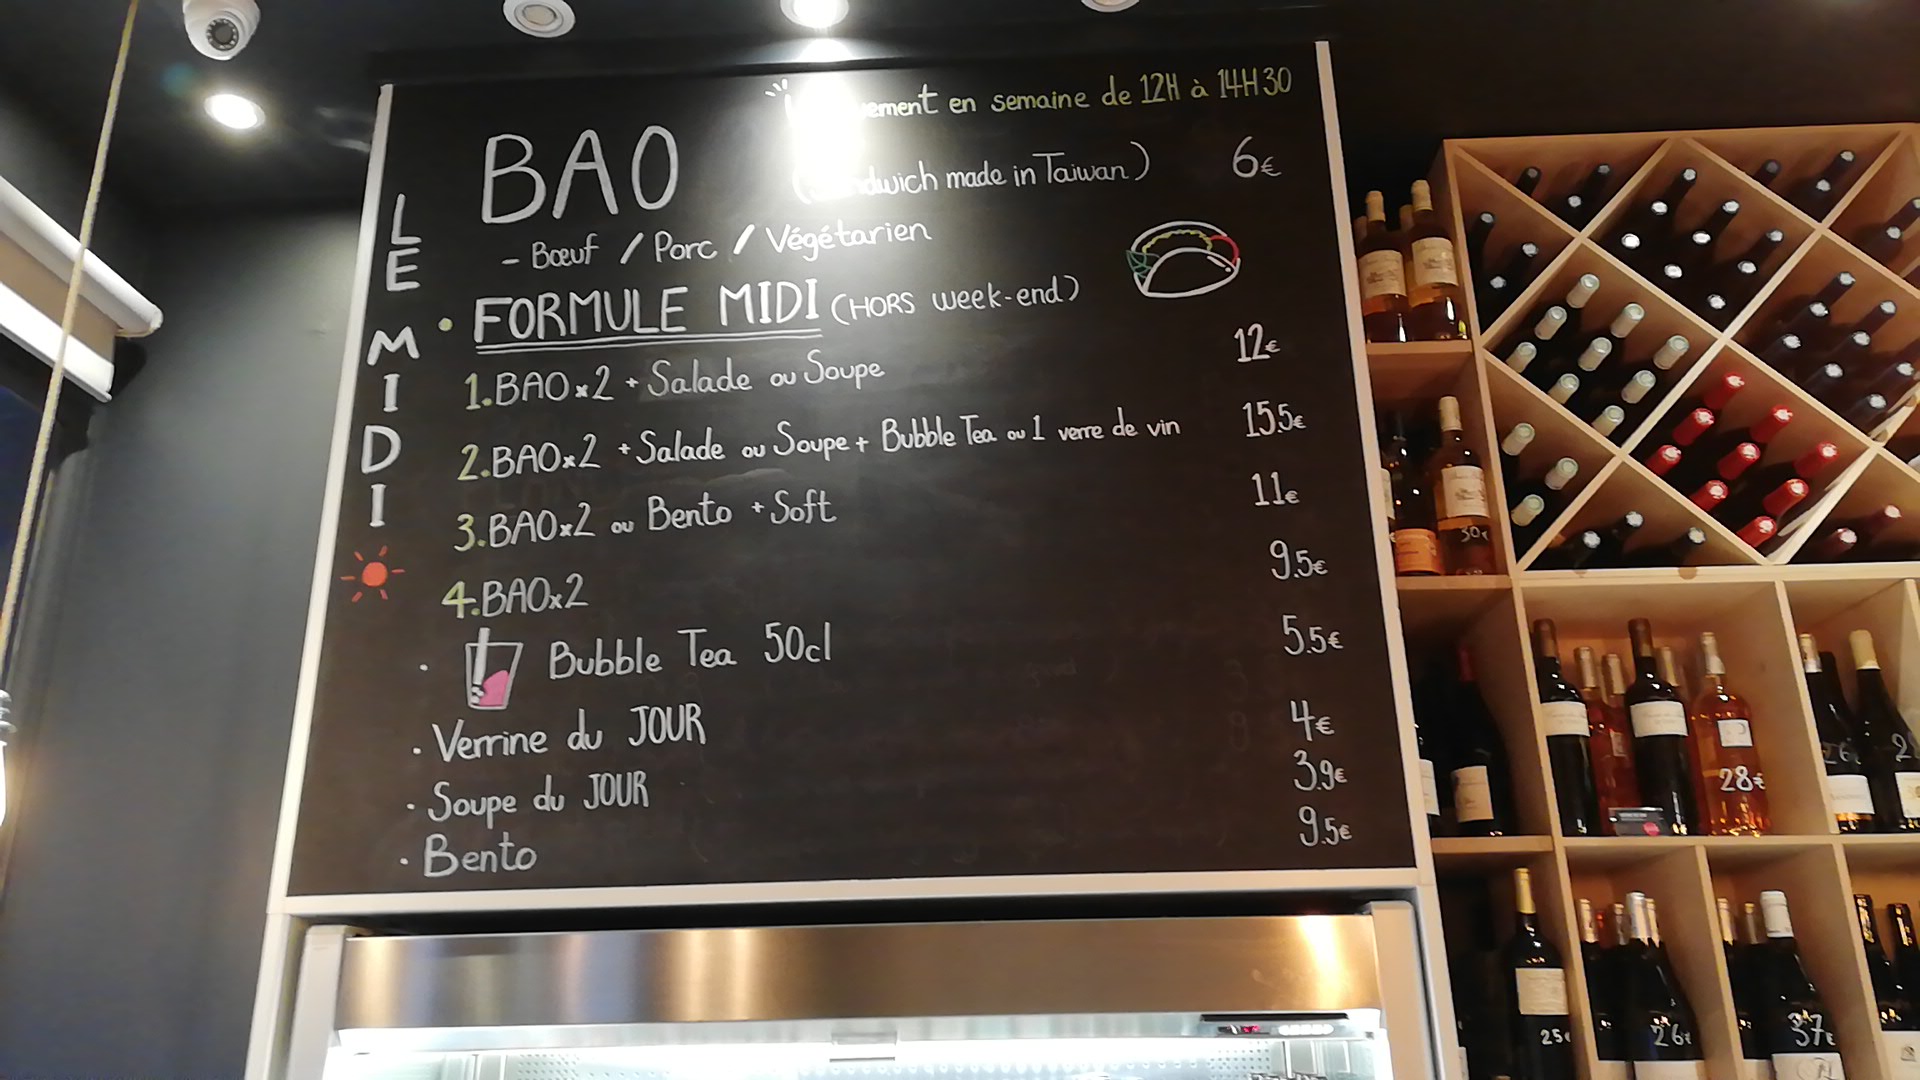 en semaine de 12H à 14H30
BAO
made in Taiwan) 6€
- Bœuf / Porc / Végétarien
LE MIDI
• FORMULE MIDI (HORS week-end)
1. BAO x 2 + Salade ou Soupe 12€
2. BAO x 2 + Salade ou Soupe + Bubble Tea ou 1 verre de vin 15.5€
3. BAO x 2 ou Bento + Soft 11€
4. BAO x 2 9.5€
• Bubble Tea 50cl 5.5€
• Verrine du JOUR 4€
• Soupe du JOUR 3.9€
• Bento 9.5€
30€
28€
26
25€
26€
37€